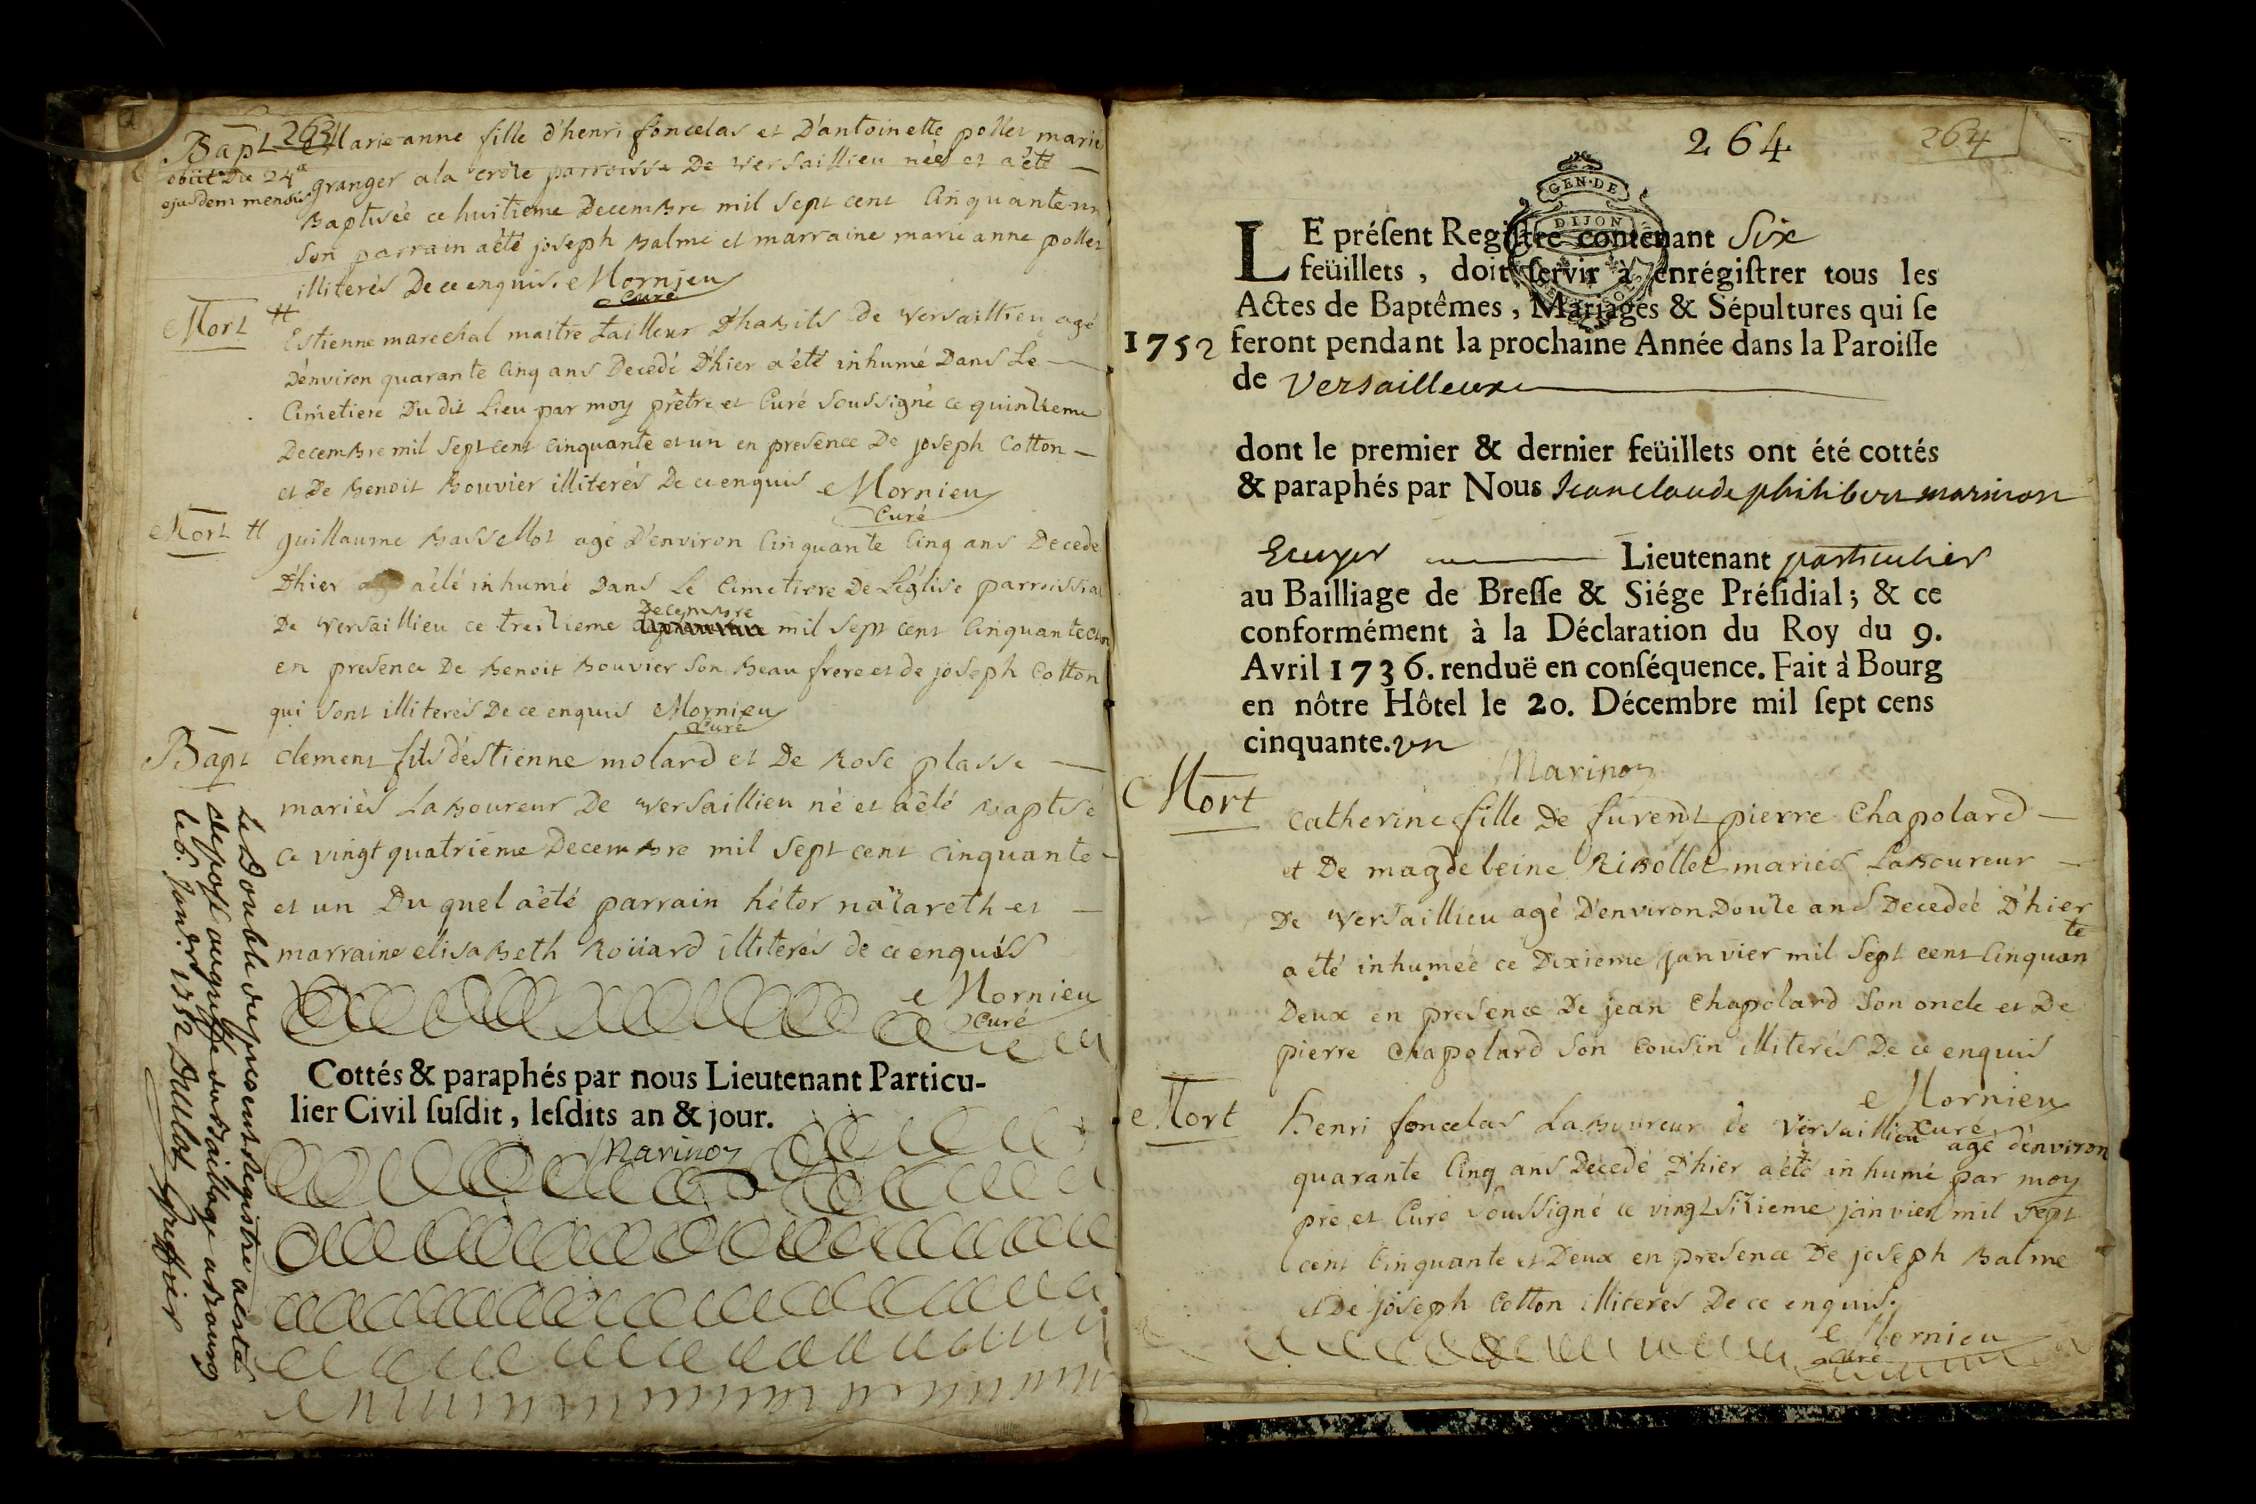 263
Bapt Marie anne fille d'henri foncelas et D'antoinette pollet marié
obiit Die 24a
ejusdem mensis
granger a la croze parroisse De Versaillieu née et a été
Baptisée ce huitieme DecemBre mil sept cent Cinquante un
son parrain a été joseph Balme et marraine marie anne pollet
illiterés De ce enquis. Mornieu
Curé
Mort
Estienne marechal maitre tailleur D'haBits de Versaillieu agé
D'environ quarante Cinq ans Decedé D'hier a été inhumé Dans Le
Cimetiere Du dit Lieu par moy prêtre et Curé soussigné ce quinzieme
DecemBre mil sept cent cinquante et un en presence De joseph Cotton
et De Benoit Bouvier illiterés De ce enquis Mornieu
Curé
Mort guillaume Bassellot agé D'environ Cinquante Cinq ans Decedé
D'hier a été inhumé Dans Le Cimetiere De L'église parroissial
DecemBre
De Versaillieu ce treizieme mil sept cent Cinquante et un
en presence De Benoit Bouvier son Beau frere et de joseph Cotton
qui sont illiterés De ce enquis Mornieu
Curé
Bapt clement fils d'estienne molard et De Rose plasse
mariés LaBoureur De Versaillieu né et a été Baptisé
ce vingt quatriéme DecemBre mil sept cent cinquante
et un Du quel a été parrain hétor nazareth et
marraine elisaBeth Roüard illiterés de ce enquis
Mornieu
Curé
Cottés & paraphés par nous Lieutenant Particu-
lier Civil susdit, lesdits an & jour.
Marinon
Le Double du present Registre a esté
deposé au greffe du Bailliage a Bourg
le 6. Janvr 1752 Greffier
264
264
GEN·DE
DIJON
LE présent Registre contenant Six
feüillets, doit servir à enrégistrer tous les
Actes de Baptêmes, Mariages & Sépultures qui se
1752 feront pendant la prochaine Année dans la Paroisse
de Versailleux
dont le premier & dernier feüillets ont été cottés
& paraphés par Nous Jean claude philibert marinon
Ecuyer Lieutenant particulier
au Bailliage de Bresse & Siége Présidial; & ce
conformément à la Déclaration du Roy du 9.
Avril 1736. renduë en conséquence. Fait à Bourg
en nôtre Hôtel le 20. Décembre mil sept cens
cinquante. un
Marinon
Mort
Catherine fille De furent pierre Chapolard
et De magdeleine RiBollet mariés LaBoureur
De Versaillieu agé D'environ Douze ans Decedeé D'hier
a été inhumeé ce Dixieme janvier mil sept cent Cinquante
Deux en presence De jean Chapolard son oncle et De
pierre Chapolard son Cousin illiterés De ce enquis
Mornieu
Curé
Mort henri foncelas LaBoureur de Versaillieu agé d'environ
quarante Cinq ans Decedé D'hier a été inhumé par moy
pre et Curé soussigné ce vingt sizieme janvier mil sept
cent Cinquante et Deux en presence De joseph Balme
et De joseph Cotton illiteres De ce enquis.
Mornieu
Curé